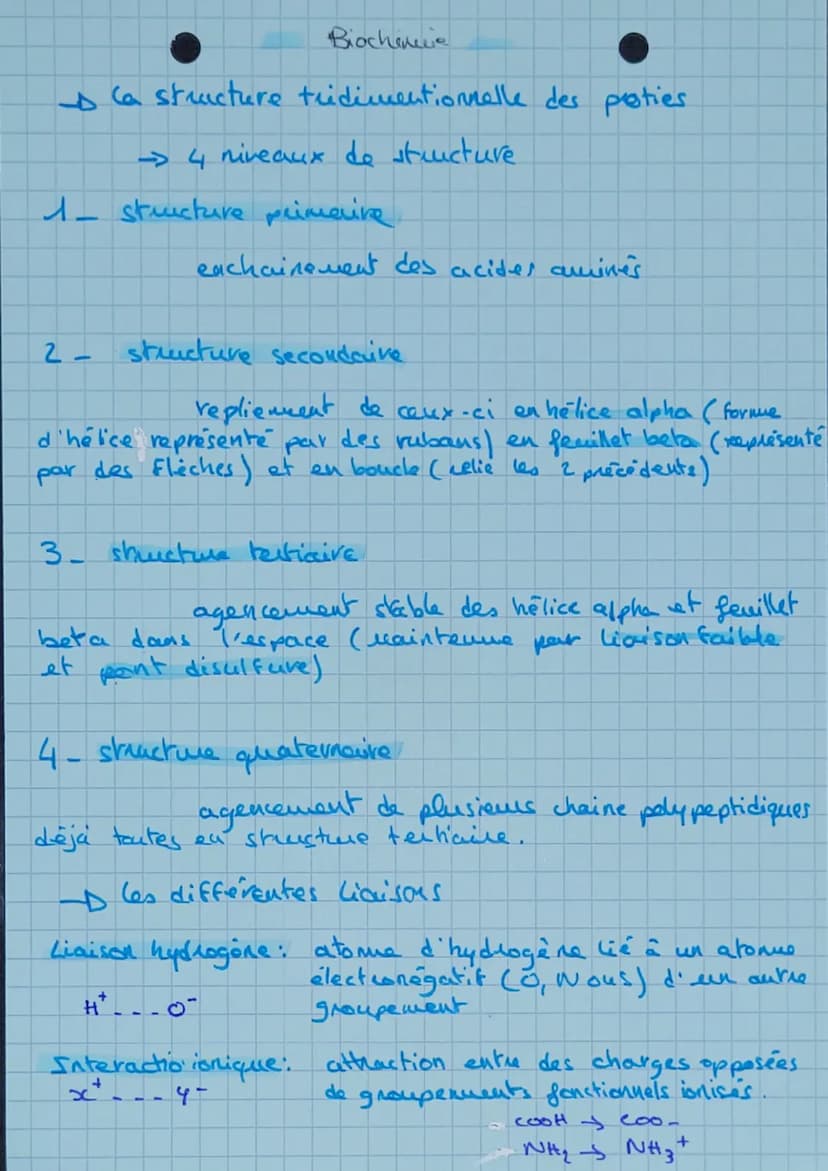 Biochimie
→ La structure tridimentionnelle des poties
→ 4 niveaux de structure
1_ structure primaire
enchainement des acides aminés
2 - structure secondaire
repliement de ceux-ci en hélice alpha (forme
d'hélice représenté par des rubans) en feuillet beta (représenté
par des flèches) et en boucle (relie les 2 précédents)
3_ structure tertiaire
agencement stable des hélice alpha et feuillet
beta dans l'espace (maintenue par liaison faible
et pont disulfure)
4_ structure quaternaire
agencement de plusieurs chaine polypeptidiques
déjà toutes en structure tertiaire.
→ Les différentes liaisons
Liaison hydrogène: atome d'hydrogène lié à un atome
électronégatif (O, N ou S) d'un autre
H⁺ - - - O⁻ groupement
Interactio ionique: attraction entre des charges opposées
x⁺ - - - y⁻ de groupements fonctionnels ionisés.
- COOH → COO-
- NH₂ → NH₃⁺